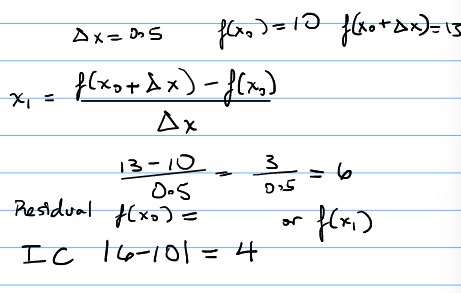 Δx = 0.5 f(x₀) = 10 f(x₀+Δx) = 13
x₁ = f(x₀+Δx) - f(x₀) / Δx
13-10 / 0.5 = 3 / 0.5 = 6
Residual f(x₀) = or f(x₁)
IC |6-10| = 4